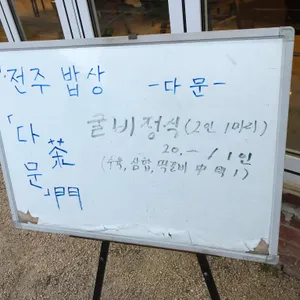 전주 밥상 -다문-
「다문」
茶門
굴비정식(2인 1마리)
20.- / 1인
(수육, 삼합, 떡갈비 中 택 1)